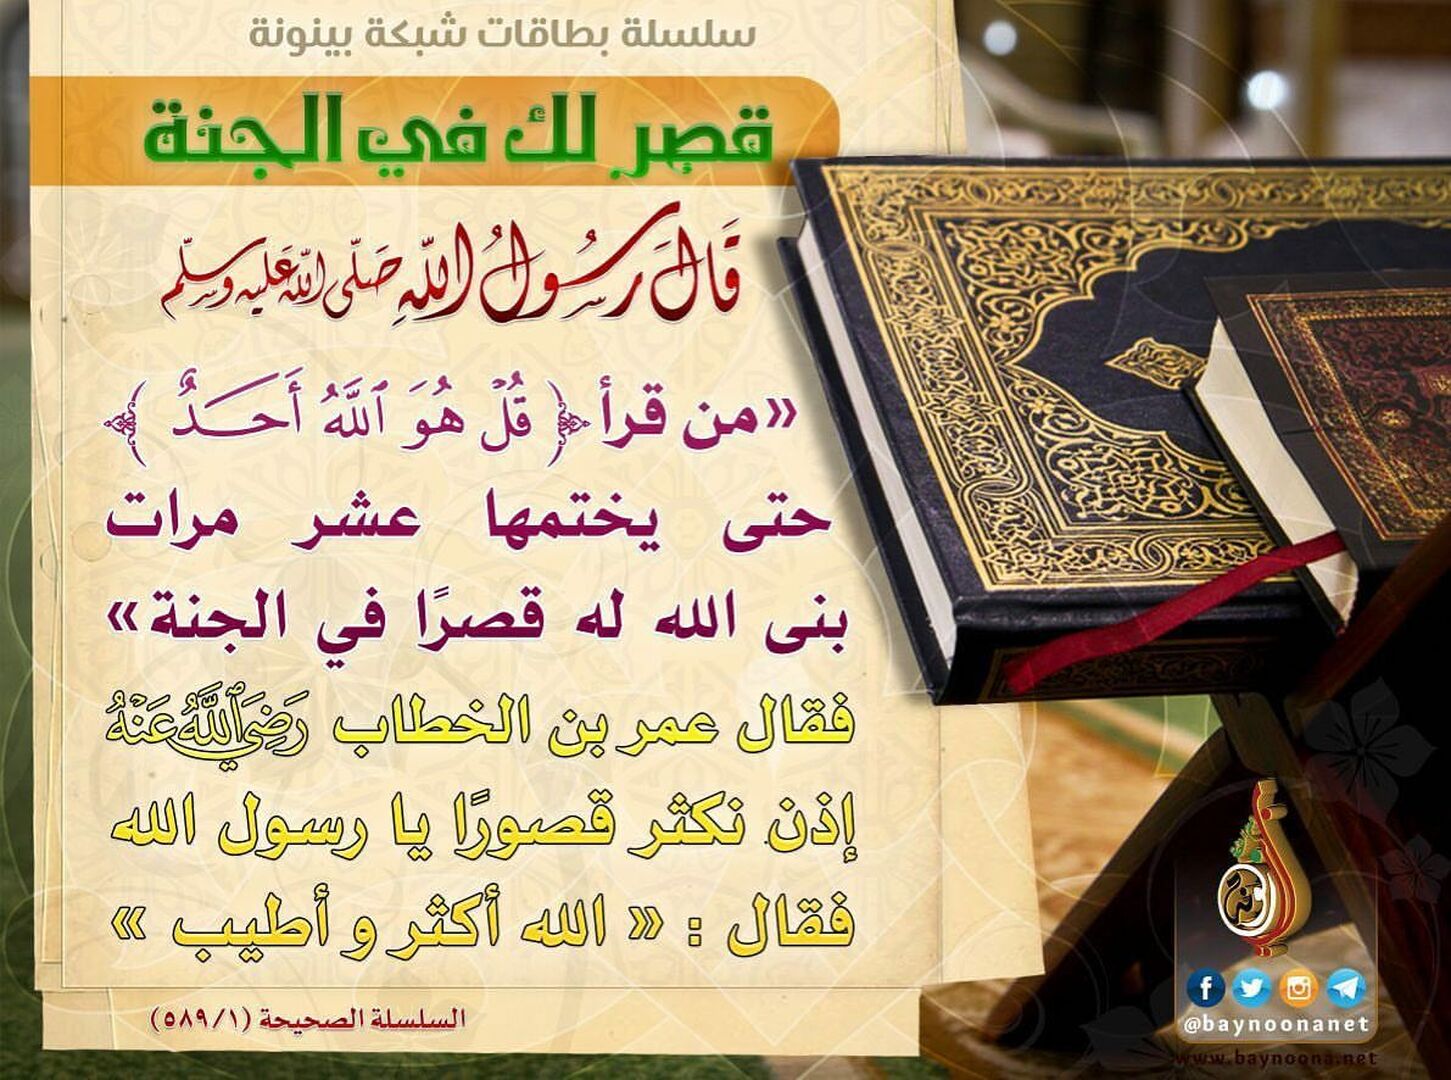 سلسلة بطاقات شبكة بينونة
قصر لك في الجنة
قَالَ رَسُولُ اللّهِ صَلّى اللّه عَليه وسلّم
«من قرأ ﴿ قُلْ هُوَ ٱللَّهُ أَحَدٌ ﴾
حتى يختمها عشر مرات
بنى الله له قصرًا في الجنة»
فقال عمر بن الخطاب رَضِيَ ٱللَّهُ عَنْهُ
إذن نكثر قصورًا يا رسول الله
فقال : « الله أكثر و أطيب »
السلسلة الصحيحة (٥٨٩/١)
@baynoonanet
www.baynoona.net